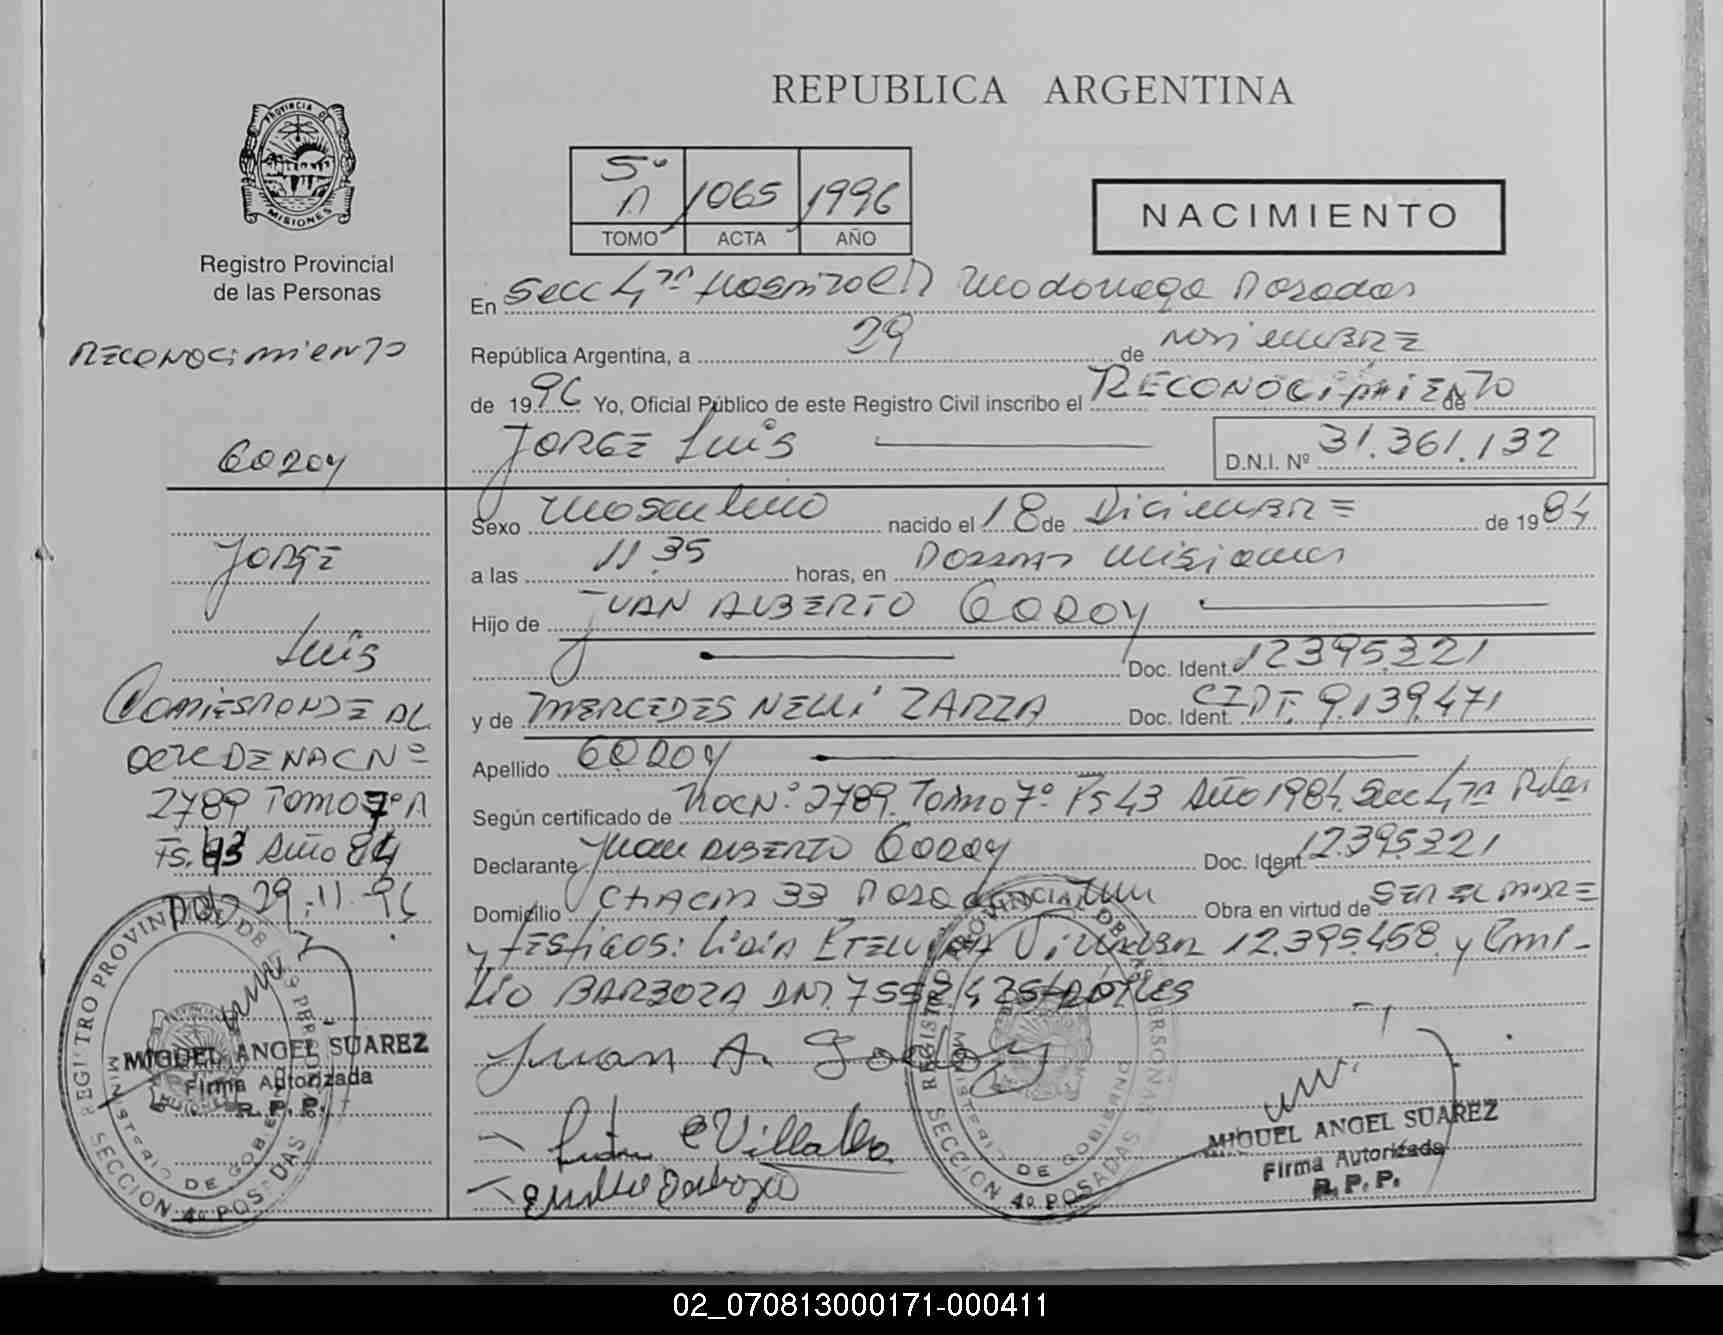 PROVINCIA DE
MISIONES
Registro Provincial
de las Personas
RECONOCIMIENTO
GODOY
JORGE
LUIS
CORRESPONDE AL
DE NAC Nº
2789 TOMO 7º A
Fs. 43 Año 84
29-11-96
REGISTRO PROVINCIAL DE LAS PERSONAS
MINISTERIO DE GOBIERNO
SECCION 4º POSADAS
MIGUEL ANGEL SUAREZ
Firma Autorizada
R. P. P.
REPUBLICA ARGENTINA
5º A 1065 1996
TOMO ACTA AÑO
NACIMIENTO
En Secc 4ta Hospital R Madariaga Posadas
República Argentina, a 29 de NOVIEMBRE
de 1996 Yo, Oficial Público de este Registro Civil inscribo el RECONOCIMIENTO de
JORGE LUIS D.N.I. Nº 31.361.132
Sexo Masculino nacido el 18 de DICIEMBRE de 1984
a las 11 35 horas, en Posadas Misiones
Hijo de JUAN ALBERTO GODOY
Doc. Ident. 12395321
y de MERCEDES NELLI ZARZA Doc. Ident. CIDF. 9.139.471
Apellido GODOY
Según certificado de Nac Nº 2789. Tomo 7º Fs 43 Año 1984. Secc 4ta Pdas
Declarante Juan ALBERTO GODOY Doc. Ident. 12.395.321
Domicilio CHACO 33 Posadas Obra en virtud de SER EL PADRE
y TESTIGOS: LIDIA ETELVINA Villalba 12.395.458 y Emi-
LIO BARBOZA DNI. 7552425
Juan A. Godoy
Villalba
Barboza
REGISTRO PROVINCIAL DE LAS PERSONAS
MINISTERIO DE GOBIERNO
SECCION 4º POSADAS
MIGUEL ANGEL SUAREZ
Firma Autorizada
R. P. P.
02_070813000171-000411